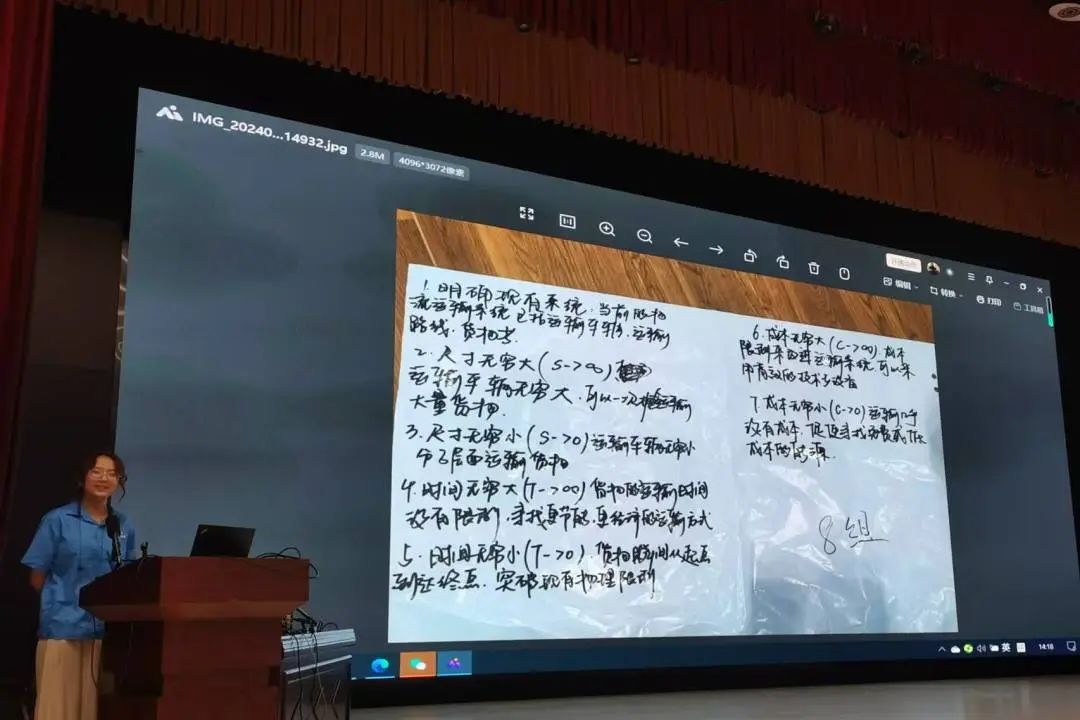 IMG_20240...14932.jpg 2.8M 4096*3072像素
编辑 转换 打印 工具箱
1. 明确现有系统:当前的物
流运输系统包括运输车辆、运输
路线、货物等.
2. 尺寸无穷大(S->∞)
运输车辆无穷大,可以一次性运输
大量货物.
3. 尺寸无穷小(S->0)运输车辆无穷小
分子层面运输货物
4. 时间无穷大(T->∞)货物的运输时间
没有限制,寻找更节能,更经济的运输方式
5. 时间无穷小(T->0).货物瞬间从起点
到达终点,突破现有物理限制
6. 成本无穷大(C->∞).成本
限制来改进运输系统,可以采
用高效的技术与设备
7. 成本无穷小(C->0)运输几乎
没有成本,促使寻找免费或低
成本的能源.
8组
英
14:18